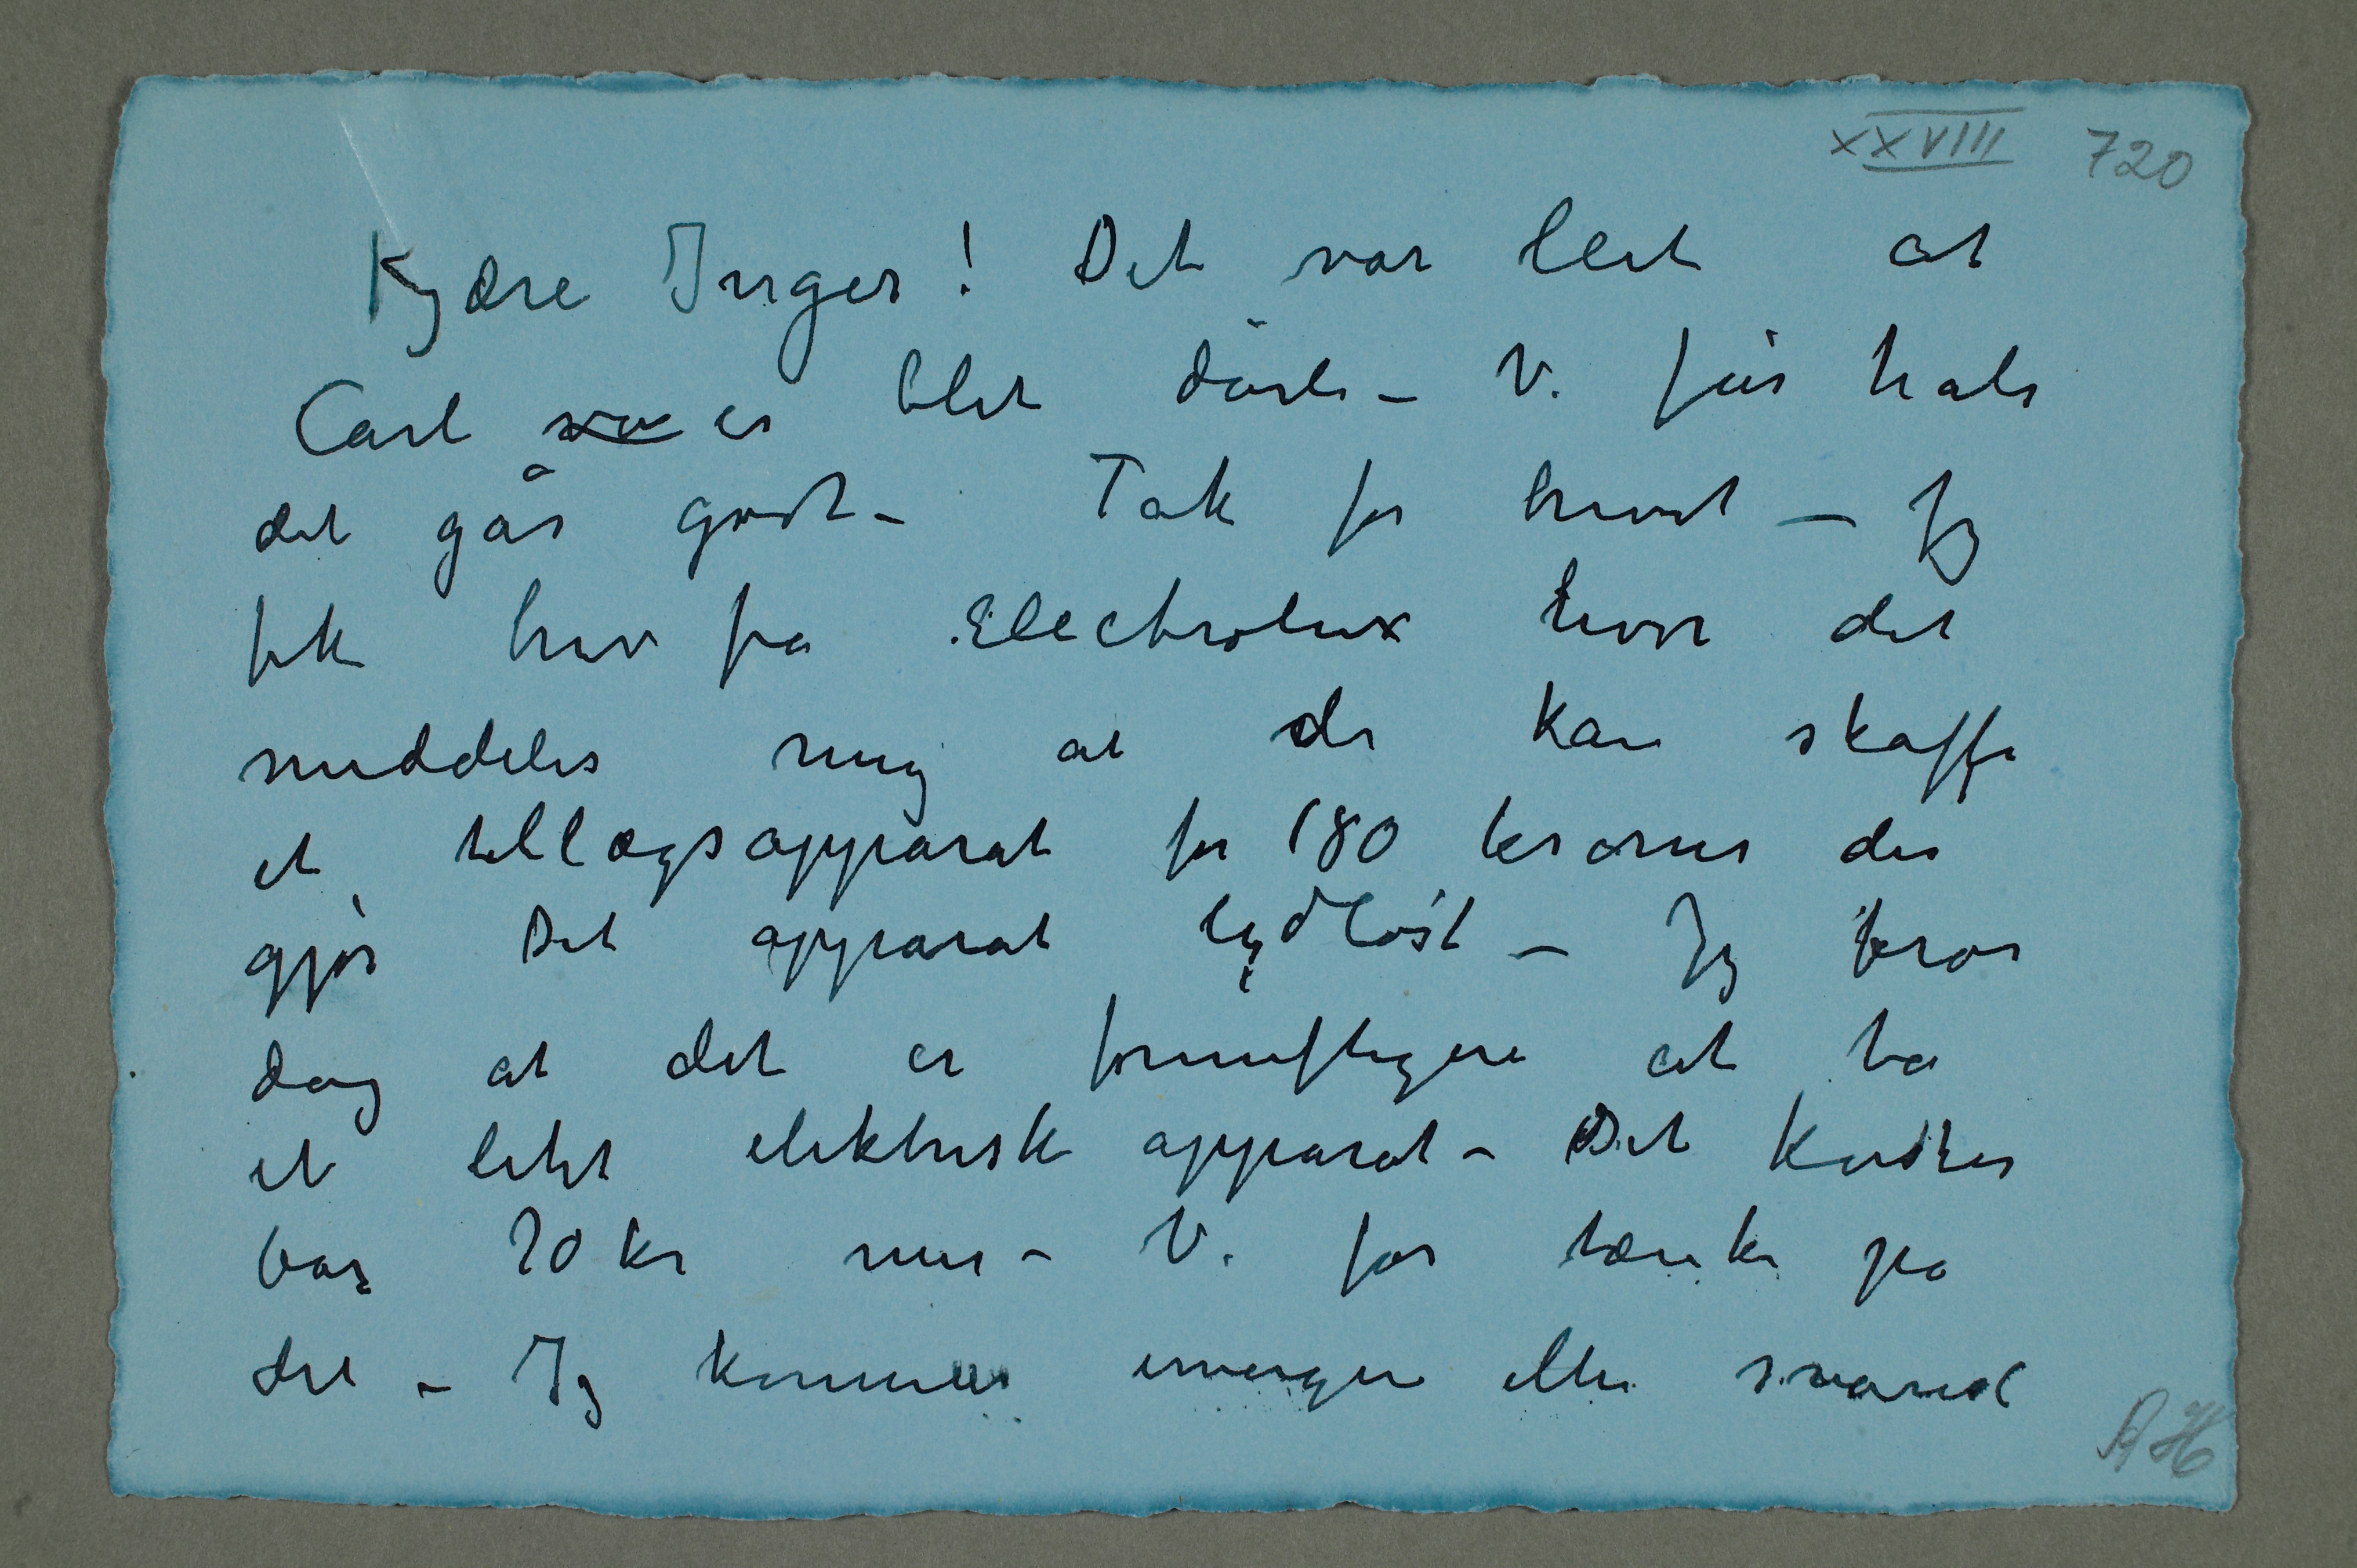 XXVIII 720
Kjære Inger! Det var leit at
Carl er blet dårli – V. får håbe
det går godt – Tak for brevet – Jeg
fik brev fra Electrolux hvor det
meddeles mig at de kan skaffe
et tillægsapparat for 180 kroner der
gjør Det apparat lydløst – Jeg tror
dog at det er fornuftigere at ta
et letet elektrisk apparat – Det koster
bar 20 kr mer – V. får tænke på
det – Jeg kommer imorgen eller svared
AH